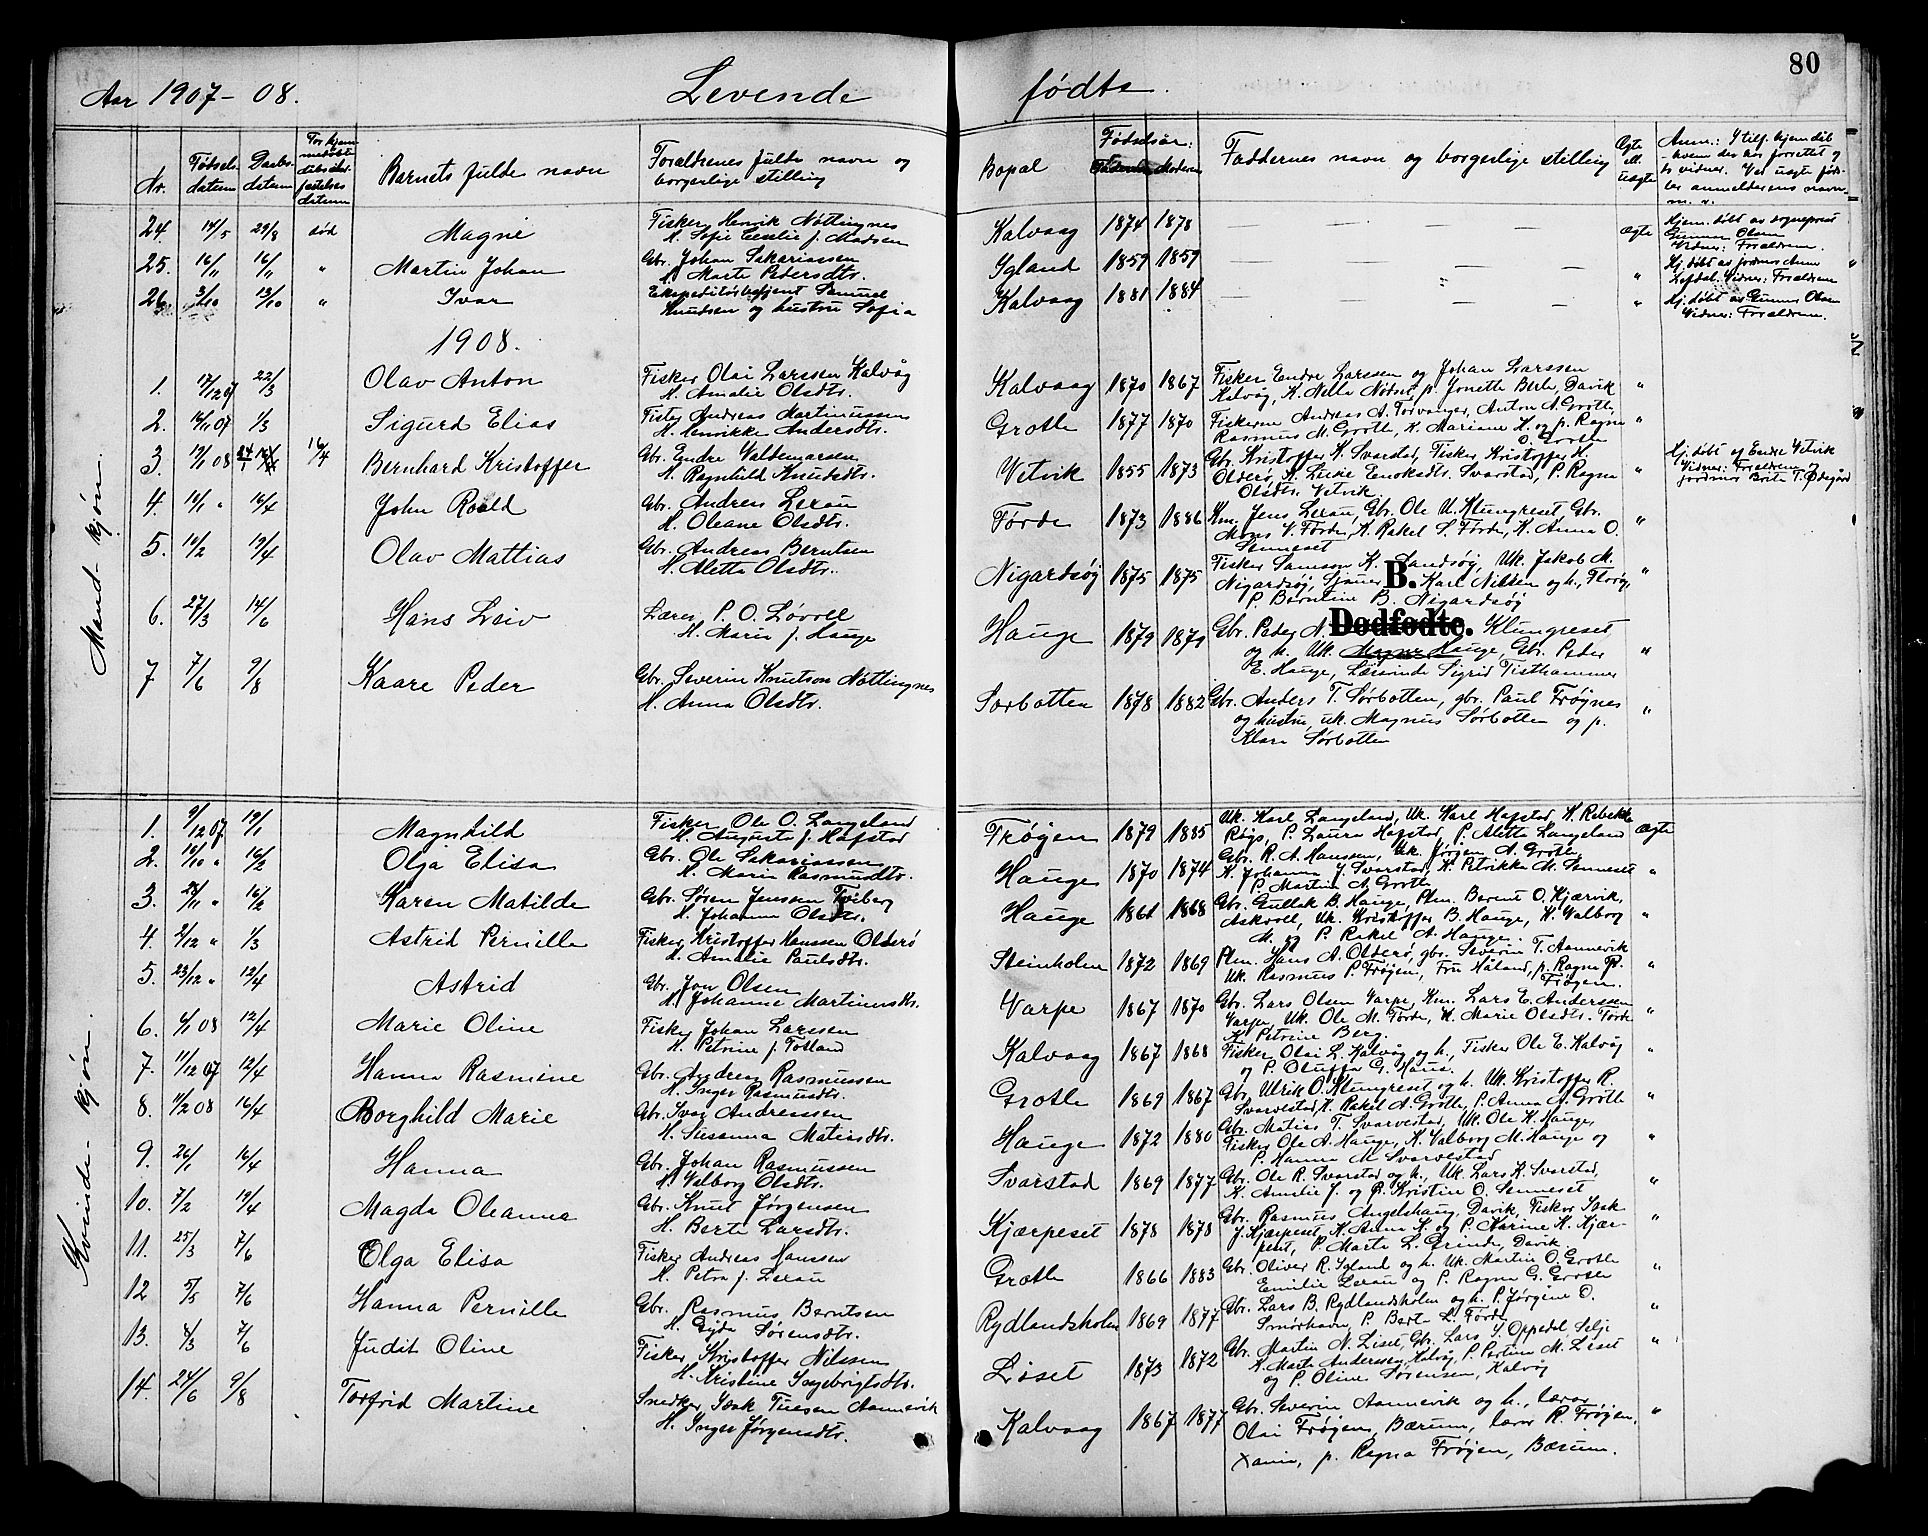 80
Aar 1907-08. Levende fødte.
Nr. Fødsels datum Daabs datum Barnets fulde navn Forældrenes fulde navn og borgerlige stilling Bopæl Fødselsår: Faderens Moderens Faddernes navn og borgerlige stilling Ægte ell. uægte
Mand-kjøn.
24. 14/5 29/8 død Magne Fisker Henrik Nøttingnes Kalvaag 1874 1878 — — — — Ægte Hjem. døbt av sogneprest
H. Sofie Emelie f. Madsen Gunnar Olsen Vidner: Forældrene.
25. 16/11 16/11 " Martin Johan Gbr. Johan Sakariassen Igland 1859 1859 — — — — " Hj. døbt av jordmor Anne
H. Marte Pedersdtr. Vidner: Forældrene
26. 3/10 13/10 " Ivar Ekspeditørbetjent Samuel Kalvaag 1881 1884 — — — — " Hj. døbt av Gunnar Olsen
Knudsen og hustru Sofia Vidner: Forældrene.
1908.
1. 17/12 07 22/3 Olav Anton Fisker Olai Larssen Kalvåg Kalvaag 1870 1867 Fisker Endre Larssen og Johan Larssen "
H. Amalie Olsdtr. Kalvåg, K. Nella Nødset, p. Jonette Berle, Davik
2. 14/11 07 1/3 Sigurd Elias Fisker Andreas Martinussen Grotle 1877 1870 Fiskerne Andreas A. Torvanger, Anton A. Grotle, "
H. Henrikke Andersdtr. Rasmus M. Grotle, K. Mariane H. og p. Ragna O. Grotle
3. 19/1 08 16/4 Bernhard Kristoffer Gbr. Endre Valdemarsen Vetvik 1855 1873 Gbr. Kristoffer K. Svarstad, Fisker Kristoffer H. " Hj. døbt af Endre Vetvik
H. Ragnhild Knutsdtr. Olderø, K. Lucie Enoksdtr. Svarstad, P. Ragna Vidner: Forældrene og
Olsdtr. Vetvik jordmor Brite T. Ødegård
4. 14/1 " 16/4 John Roald Gbr. Andreas Lerau Førde 1873 1886 Km. Jens Lerau, Gbr. Ole U. Klungreset, Gbr. "
H. Oleane Olsdtr. Mons V. Førde, K. Rakel S. Førde, K. Anna O. Senneset
5. 14/2 19/4 Olav Mattias Gbr. Andreas Berntsen Nigardsøj 1875 1875 Fisker Samson K. Landsøj, Uk. Jakob M. "
H. Aletta Olsdtr. Nigardsøj, Sjauer Karl Nilsen og h., Florø,
B. P. Berntine B. Nigardsøj
6. 27/3 14/6 Hans Leiv Lærer P. O. Løvoll Hauge 1879 1879 Gbr. Peder A. Klungreset "
Dødfødte.
H. Marie f. Hauge og h. Uk. Magnus Hauge, Gbr. Peder
E. Hauge, Lærerinde Sigrid Tisthammer
7 7/6 9/8 Kaare Peder Gbr. Severin Knutson Nøttingnes Sørbotten 1878 1882 Gbr. Anders T. Sørbotten, gbr. Paul Frøynes "
H. Anna Olsdtr. og hustru, uk. Magnus Sørbotten og p.
Klara Sørbotten
Kvinde-kjøn.
1. 9/12 07 19/1 Magnhild Fisker Ole O. Langeland Frøyen 1879 1885 Uk. Karl Langeland, Uk. Karl Hafstad, K. Rebekka Ægte
H. Augusta f. Hafstad P. Laura Hafstad, P. Aletta Langeland
2. 10/10 " 16/2 Olga Elisa Gbr. Ole Sakariassen Hauge 1870 1874 Gbr. R. A. Hanssen, Uk. Jørgen A. Grotle, "
H. Marie Rasmusdtr. K. Johanna J. Svarstad, K. Petrikke M. Senneset
P. Martine A. Grotle
3. 28/11 " 16/2 Karen Matilde Gbr. Søren Jenssen Tviberg Hauge 1861 1868 Gbr. Gullak B. Hauge, Plm. Berent O. Kjærvik, "
H. Johanne Olsdtr. Askvoll, Uk. Kristoffer B. Hauge, K. Valborg
M. og P. Rakel A. Hauge.
4. 2/12 " 1/3 Astrid Pernille Fisker Kristoffer Hanssen Olderø Steinholm 1872 1869 Plm. Hans A. Olderø, gbr. Severin T. Aannevik "
H. Amalie Paulsdtr. Uk. Rasmus P. Frøyen, Fru Håland, p. Ragna P. Frøyen.
5. 23/12 " 12/4 Astrid Gbr. Jon Olsen Varpe 1867 1870 Gbr. Lars Olsen Varpe, Km. Lars E. Anderssen "
H. Johanne Martinusdtr. Varpe, Uk. Ole M. Førde, K. Marie Olsdtr. Førde
K. Petrine Berg
6. 4/1 08 12/4 Marie Oline Fisker Johan Larssen Kalvaag 1867 1868 Fisker Olai L. Kalvåg og h., Fisker Ole E. Kalvåg "
H. Petrine f. Totland og P. Oluffa G. Haus.
7. 11/12 07 12/4 Hanna Rasmine Gbr. Andreas Rasmussen Grotle 1869 1867 Gbr. Ulrik O. Klungreset og h. Uk. Kristoffer R. "
H. Inger Rasmusdtr. Svarvestad, K. Rakel A. Grotle, P. Anna A. Grotle
8. 11/2 08 16/4 Borghild Marie Gbr. Ivar Andreassen Hauge 1872 1880 Gbr. Matias T. Svarvestad, Uk. Ole K. Hauge, "
H. Susanna Matiasdtr. Fisker Ole A. Hauge, K. Valborg M. Hauge og
P. Hanna M. Svarvestad
9. 26/1 16/4 Hanna Gbr. Johan Rasmussen Svarstad 1869 1877 Gbr. Ole R. Svarstad og h., Uk. Lars K. Svarstad, "
H. Valborg Olsdtr. K. Amelie J. og P. Kristine O. Senneset
10. 7/2 19/4 Magda Oleanna Gbr. Knut Jørgensen Kjærpeset 1878 1878 Gbr. Rasmus Angelshaug, Davik, Fisker Isak "
H. Berte Larsdtr. J. Kjærpeset, K. Anna K. og P. Karine K. Kjær-
peset, P. Marte L. Grinde, Davik.
11. 25/3 7/6 Olga Elisa Fisker Andreas Hanssen Grotle 1866 1883 Gbr. Oliver R. Igland og h. Uk. Martin O. Grotle "
H. Petra f. Lerau Emilie Lerau og P. Ragna G. Grotle
12 5/5 7/6 Hanna Pernille Gbr. Rasmus Berntsen Rydlandsholm 1869 1877 Gbr. Lars B. Rydlandsholm og h. P. Jørgine O. "
H. Gyda Sørensdtr. Smørhavn, P. Berta L. Førde
13. 4/3 7/6 Judit Oline Fisker Kristoffer Nilssen Løset 1873 1872 Gbr. Martin N. Løset, Gbr. Lars S. Oppedal, Selje "
H. Kristine Ingebrigtsdtr. K. Marta Anderssen, Kalvåg, P. Pertine M. Løset
og P. Oline Sørensen, Kalvåg
14. 24/6 9/8 Torfrid Martine Snedker Isak Tuesen Aannevik Kalvaag 1867 1877 Gbr. Severin Aannevik og h., lærer "
H. Inger Jørgensdtr. Olai Frøyen, Bærum, lærer R. Frøyen,
p. Ragna Frøyen, Bærum.